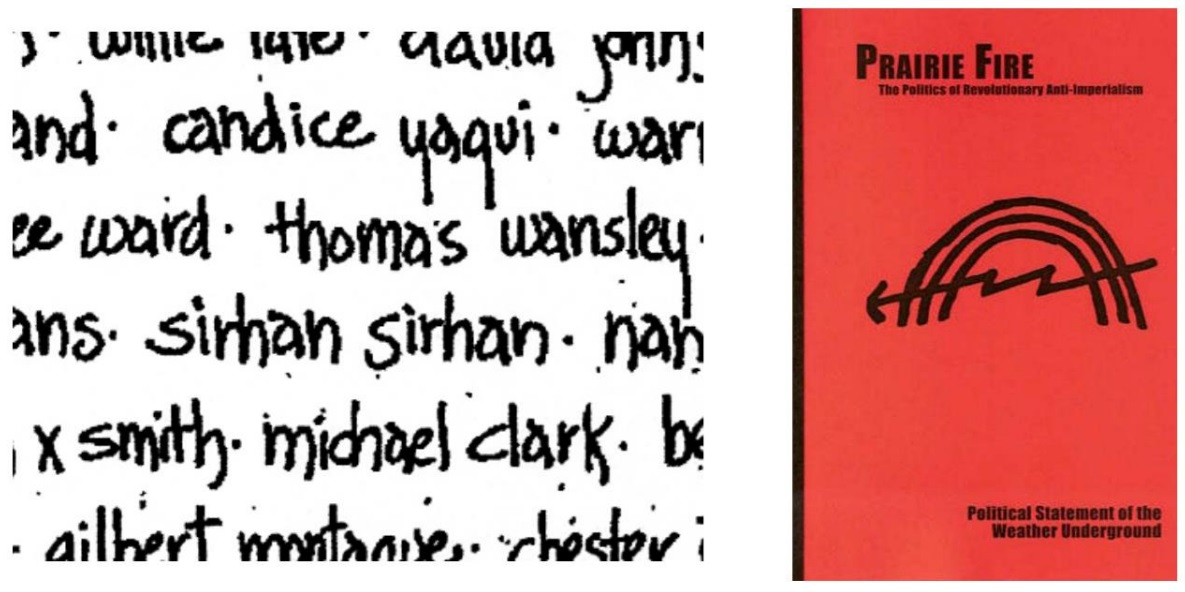 willie tate · david john
and · candice yaqui · warr
ee ward · thomas wansley ·
ans · sirhan sirhan · nan
x smith · michael clark · be
· gilbert montague · chester
PRAIRIE FIRE
The Politics of Revolutionary Anti-Imperialism
Political Statement of the
Weather Underground